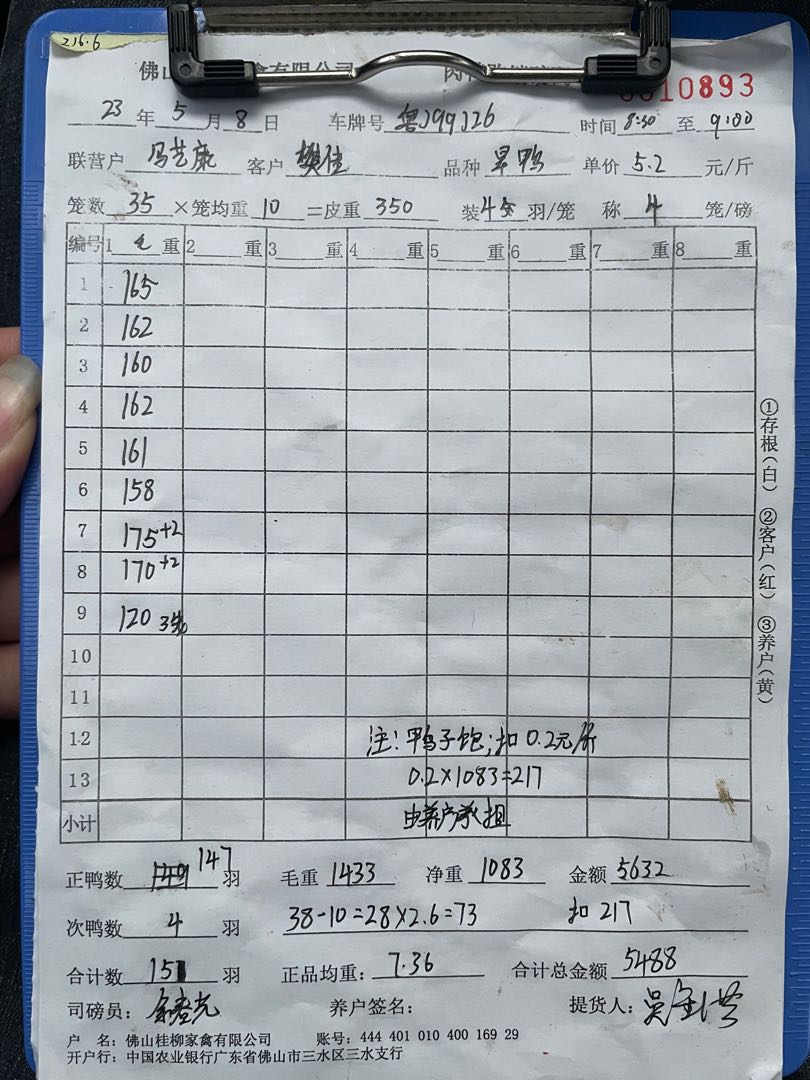 216.6
佛山 禽有限公司
0010893
23 年 5 月 8 日 车牌号 粤J99J26 时间 8:30 至 9:00
联营户 冯艺康 客户 樊佳 品种 旱鸭 单价 5.2 元/斤
笼数 35 ×笼均重 10 =皮重 350 装 4-5 羽/笼 称 4 笼/磅
编号 1 毛 重 2 重 3 重 4 重 5 重 6 重 7 重 8 重
1 165
2 162
3 160
4 162
5 161
6 158
7 175+2
8 170+2
9 120 3笼
10
11
12 注:鸭子饱;扣0.2元/斤
13 0.2×1083=217
小计 由养户承担
正鸭数 147 羽 毛重 1433 净重 1083 金额 5632
次鸭数 4 羽 38-10=28×2.6=73 扣217
合计数 151 羽 正品均重: 7.36 合计总金额 5488
司磅员: 养户签名: 提货人:
户 名: 佛山桂柳家禽有限公司 账号: 444 401 010 400 169 29
开户行: 中国农业银行广东省佛山市三水区三水支行
①存根(白) ②客户(红) ③养户(黄)